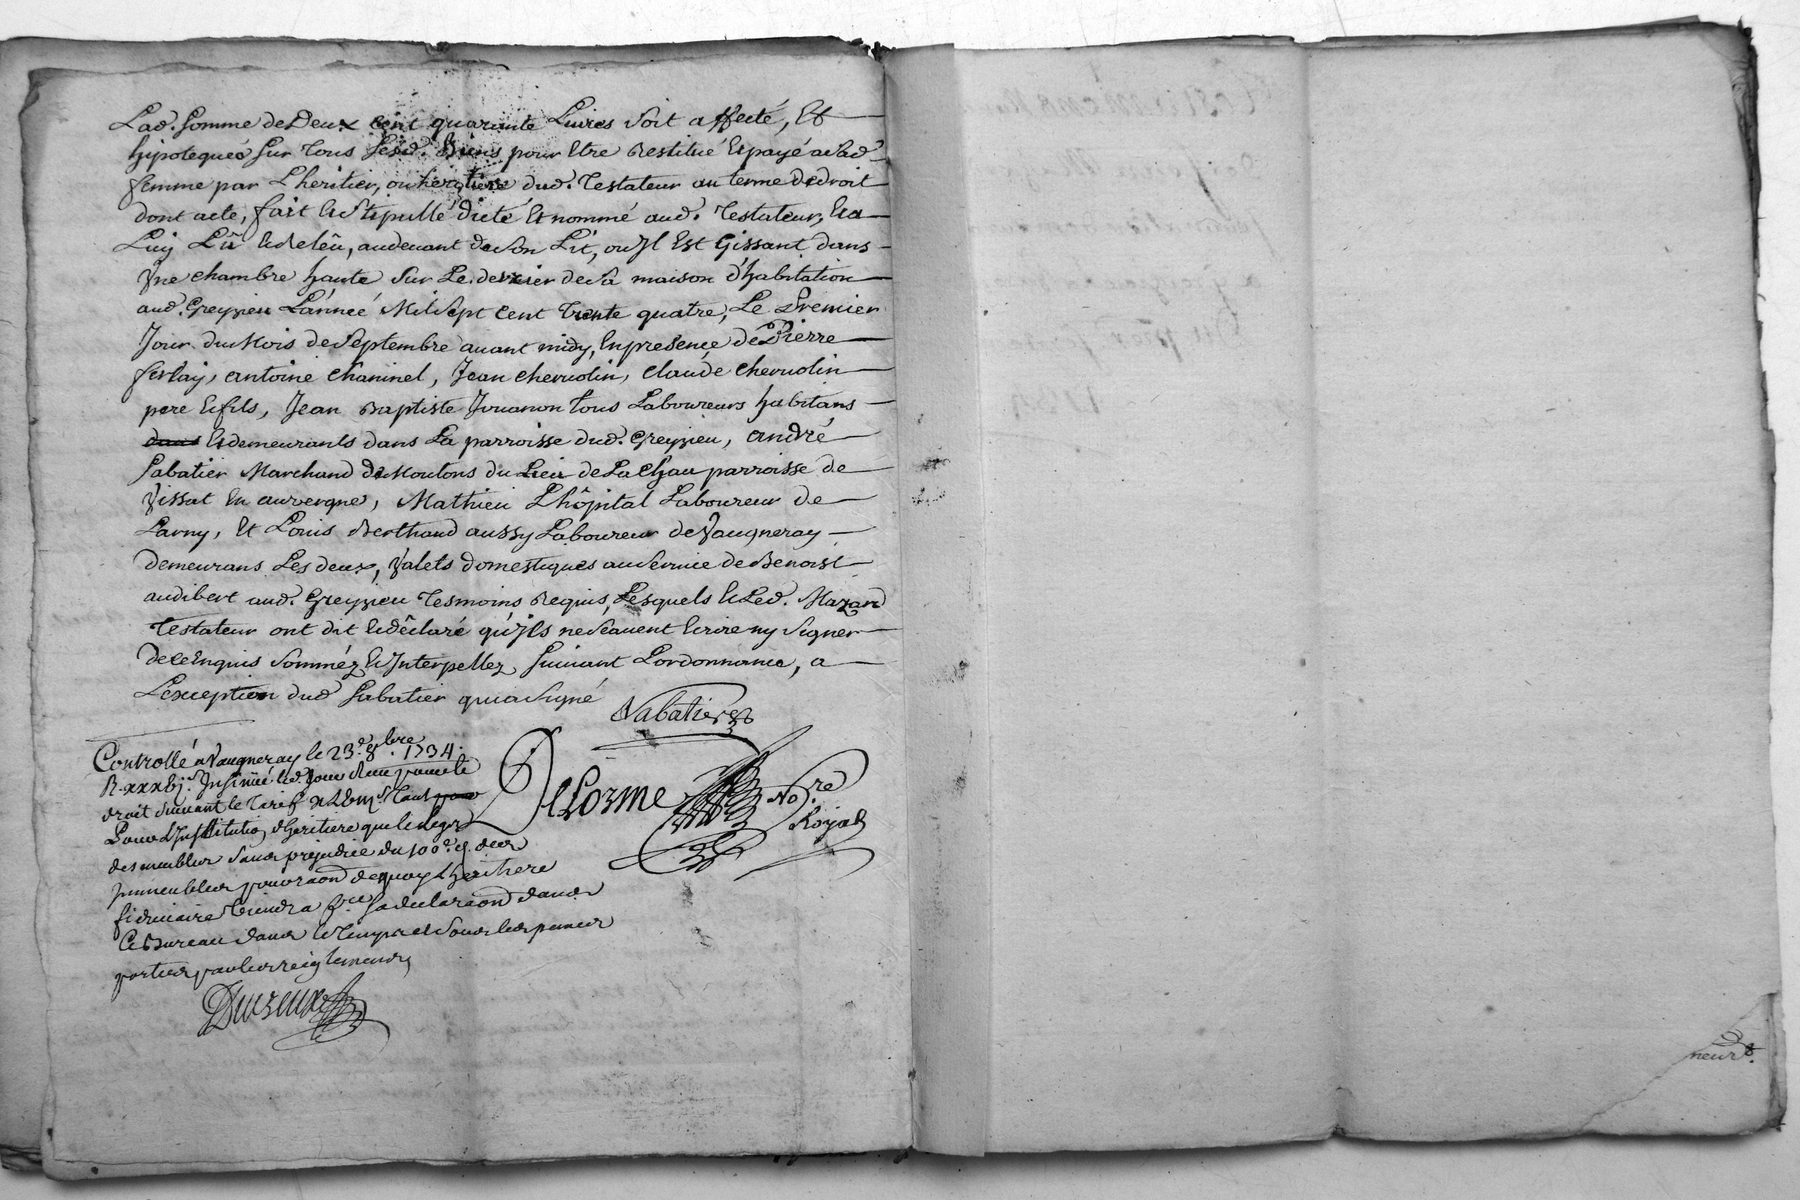 Lad. somme de Deux cent quarante Livres soit affecté, Et
hipotequéé sur tous sesd. Biens pour Etre Restitué Et payé a lad.
femme par L'heritier, ou heritiere dud. Testateur au terme de droit
dont acte, fait Et stipullé dicté Et nommé aud. Testateur, Et a
Luy Lû Et Relêu, audevant de son Lit, ou Jl Est Gissant dans
Vne chambre haute sur Le derrier de sa maison d'habitation
aud. Greyzieu L'année Mil sept cent trente quatre, Le Premier
Jour du Mois de Septembre avant midy, En presence de Pierre
ferlay, antoine Chaninel, Jean chervolin, Claude Chervolin
pere Et fils, Jean Baptiste Jouanon tous Laboureurs habitans
dans Et demeurants dans La parroisse dud. Greyzieu, André
Sabatier Marchand de Moutons du Lieu de La Chau parroisse de
Vissat En auvergne, Mathieu L'hôpital Laboureur de
Larny, Et Louis Berthaud aussy Laboureur de Vaugneray
demeurans Les deux, Valets domestiques au service de Benoist
audibert aud. Greyzieu Tesmoins Requis, Lesquels Et Led. Mazard
Testateur ont dit Et dêclaré qu'Jls ne sçavent Ecrire ny signer
de ce Enquis Somméz Et Interpellez suivant L'ordonnance, a
L'exception dud. Sabatier qui a signé
Sabatier
Controllé a Vaugneray le 23e. 8bre. 1734.
R. xxxbj s. Insinué led. jour
droit suivant le Tarif
Pour l'Institution d'heritiere que le legs
des meubles sans prejudice du 100e. d. des
Immeubles pour raон de quoy L'heritiere
fiduciaire tiendra fre. sa declaraon dans
Ce Bureau dans le Temps et sous les peines
portées par les reiglemens
DeLorme No.re
Royal
Ducreux
neur